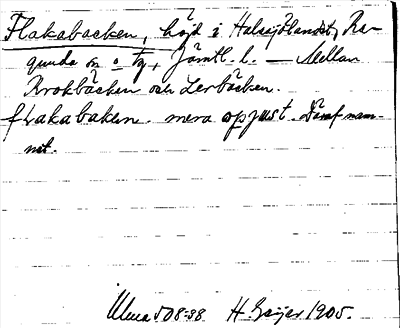 Flakabacken, höjd i Halasjölandet, Ra-
gunda sn o tg, Jämtl. l. — Mellan
Krokbäcken och Lerbäcken.
flakabaken. mera opjust. Jämf nam-
net.
Uma 508:38 H. Geijer 1905.